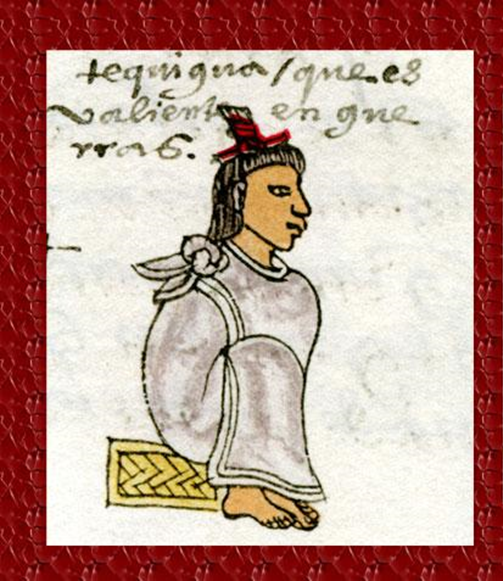 tequigua / que es
valiente en gue
rras.